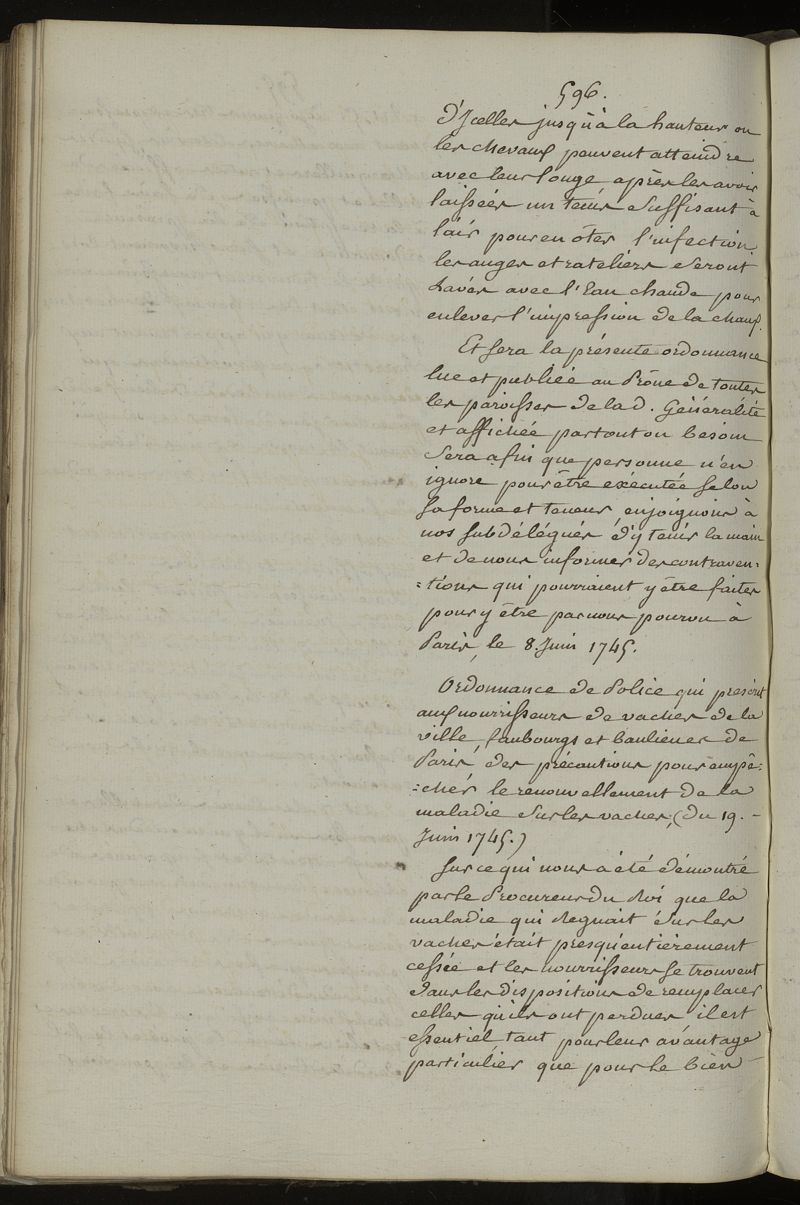 596.
d'Jcelles jusqu'à la hauteur ou
les chevaux peuvent atteindre
avec leur longe, après les avoir
laissées un tems suffisant à
l'air pour en ôter l'infection,
les auges et rateliers seront
Lavés avec l'Eau chaude pour
enlever l'impression de la chaux.
Et sera la présente ordonnance
lue et publiée au Prône de toutes
les paroisses de lad. Généralité
et affichée partout ou besoin
sera afin que personne n'en
ignore pour être exécutée selon
sa forme et teneur, enjoignons à
nos subdélégués d'y tenir la main
et de nous informer des contraven:
:tions qui pourraient y être faites
pour y être par nous pourvu à
Paris, le 8. Juin 1745.
Ordonnance de Police qui prescrit
aux nourrisseurs de vaches de la
ville, faubourgs et banlieues de
Paris, des précautions pour empê:
:cher le renouvellement de la
maladie sur les vaches, (du 19. -
Juin 1745.)
Sur ce qui nous a été démontré
par le Procureur du Roi que la
maladie qui Regnait sur les
vaches était presqu'entièrement
cessée et les nourrisseurs se trouvent
dans les dispositions de remplacer
celles qu'ils ont perdues il est
essentiel tant pour leur avantage
particulier que pour le bien